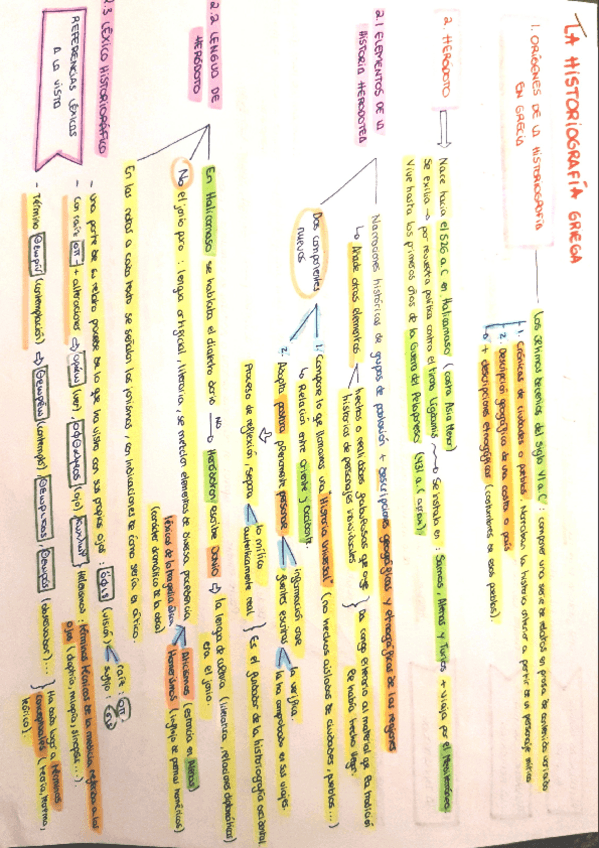 LA HISTORIOGRAFÍA GRIEGA
1. ORÍGENES DE LA HISTORIOGRAFÍA EN GRECIA
Los últimos decenios del siglo VI a.C: componer una serie de relatos en prosa de contenido variado
1. Crónicas de ciudades o pueblos. Narraban la historia anterior a partir de un personaje mítico
2. Descripción geográfica de una costa o país
+ descripciones etnográficas (costumbres de esos pueblos).
2. HERÓDOTO
Nace hacia el 526 a.C en Halicarnaso (costa Asia Menor)
Se exilia → por revuelta política contra el tirano Lígdamis → Se instala en: Samos, Atenas y Turios + viaja por el Mediterráneo
Vive hasta los primeros años de la Guerra del Peloponeso (431 a.C aprox).
2.1 ELEMENTOS DE LA HISTORIA HERODOTEA
Narraciones históricas de grupos de población + descripciones geográficas y etnográficas de las regiones
↳ Añade otros elementos
hechos o realidades fabulosas
historias de personajes individuales
Da carga ética al material que la tradición
le había hecho llegar.
Dos componentes nuevos
1. Compone lo que llamamos una "Historia Universal" (no hechos aislados de ciudades, pueblos...)
↳ Relación entre oriente y occidente.
2. Adopta postura plenamente personal
información oral
fuentes escritas
la verifica.
la ha comprobado en sus viajes
Proceso de reflexión, separa
lo mítico
auténticamente real
Es el fundador de la historiografía occidental
2.2 LENGUA DE HERÓDOTO
En Halicarnaso se hablaba el dialecto dorio
NO
Heródoto escribe Jonio ⇨ la lengua de cultura (literatura, relaciones diplomáticas)
era el jonio.
No el jonio puro: lengua artificial literaria, se mezclan elementos de diversa procedencia
Aticismos (estancia en Atenas)
Homerismos (influjo de poemas homéricos)
léxicos de la tragedia ática
(carácter dramático de la obra)
En las notas a cada texto se señalan los jonismos, con indicaciones de cómo sería el ático.
2.3 LÉXICO HISTORIOGRÁFICO
REFERENCIAS LÉXICAS A LA VISTA
- Una parte de su relato procede de lo que ha visto con sus propios ojos: ὄψις (visión)
raíz: ὀπ
sufijo: σις
- Con raíz ὀπ- + alteraciones ⇨ (ver), ὀφθαλμός (ojo)
Helenismos: términos técnicos de la medicina referida a los
ojos (dioptría, miopía, sinopsis...)
- Término (contemplación) ⇨ θεωρέω (contemplo)
(observador)...
Ha dado lugar a términos
conceptuales (teoría, teorema,
teórico).